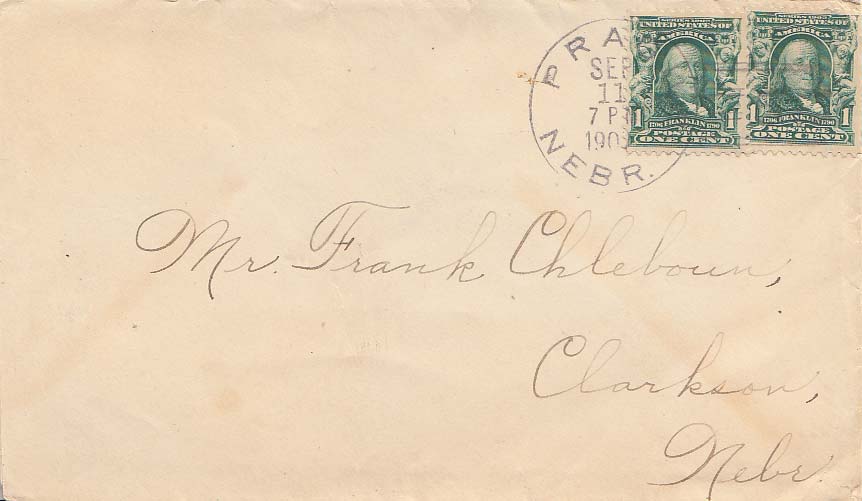 PRA
SEP
11
7 P
190
NEBR.
SERIES 1902
UNITED STATES OF
AMERICA
1 1706 FRANKLIN 1790 1
POSTAGE
ONE CENT
SERIES 1902
UNITED STATES OF
AMERICA
1 1706 FRANKLIN 1790 1
POSTAGE
ONE CENT
Mr. Frank Chleboun,
Clarkson,
Nebr.